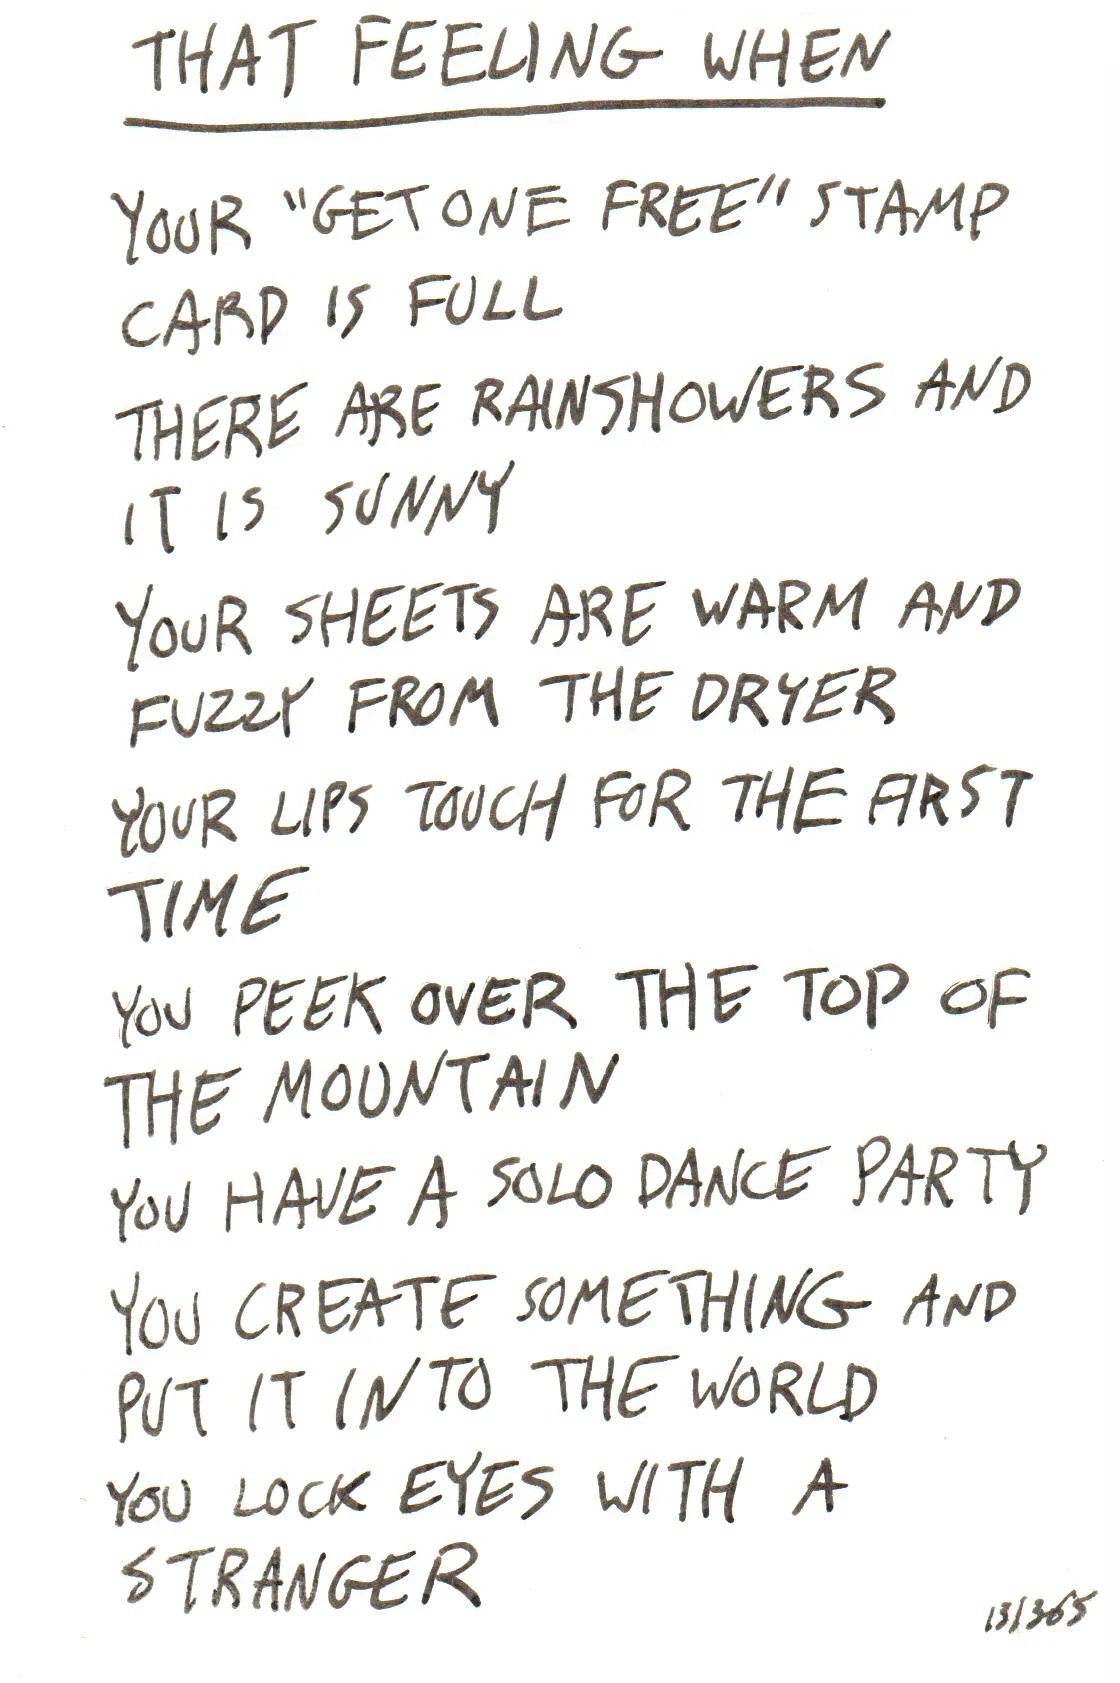 THAT FEELING WHEN
YOUR "GET ONE FREE" STAMP
CARD IS FULL
THERE ARE RAINSHOWERS AND
IT IS SUNNY
YOUR SHEETS ARE WARM AND
FUZZY FROM THE DRYER
YOUR LIPS TOUCH FOR THE FIRST
TIME
YOU PEEK OVER THE TOP OF
THE MOUNTAIN
YOU HAVE A SOLO DANCE PARTY
YOU CREATE SOMETHING AND
PUT IT INTO THE WORLD
YOU LOCK EYES WITH A
STRANGER
13/365